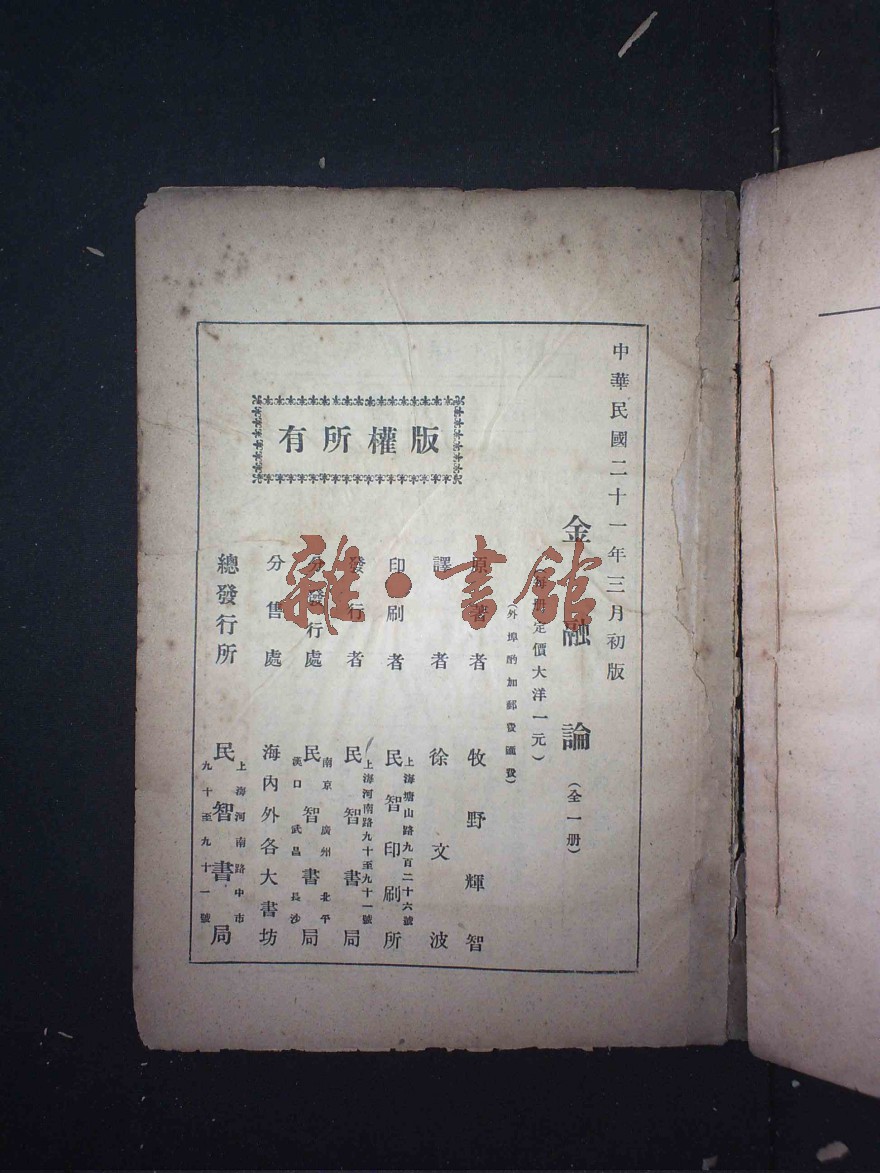 中華民國二十一年三月初版
金融論（全一册）
（每册定價大洋一元）
（外埠酌加郵費匯費）
原著者 牧野輝智
譯者 徐文波
印刷者 上海塘山路九百二十六號 民智印刷所
發行者 上海河南路九十至九十一號 民智書局
分發行處 南京 廣州 北平 民智書局 漢口 武昌 長沙
分售處 海內外各大書坊
總發行所 上海河南路中市 民智書局 九十至九十一號
版權所有
雜·書館